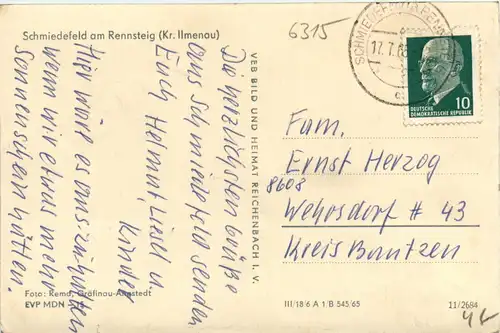 Schmiedefeld am Rennsteig (Kr. Ilmenau)
Die herzlichsten Grüße
aus Schmiedefeld senden
Euch Helmut, Liesel u.
Kinder
Hier wäre es auszuhalten
wenn wir etwas mehr
Sonnenschein hätten.
Foto: Remd, Gräfinau-Angstedt
EVP MDN
VEB BILD UND HEIMAT REICHENBACH I. V.
6315
SCHMIEDEFELD
17.7.
10
DEUTSCHE
DEMOKRATISCHE REPUBLIK
Fam.
Ernst Herzog
8608
Wehrsdorf # 43
Kreis Bautzen
III/18/6 A 1 B 545/65
11/2684